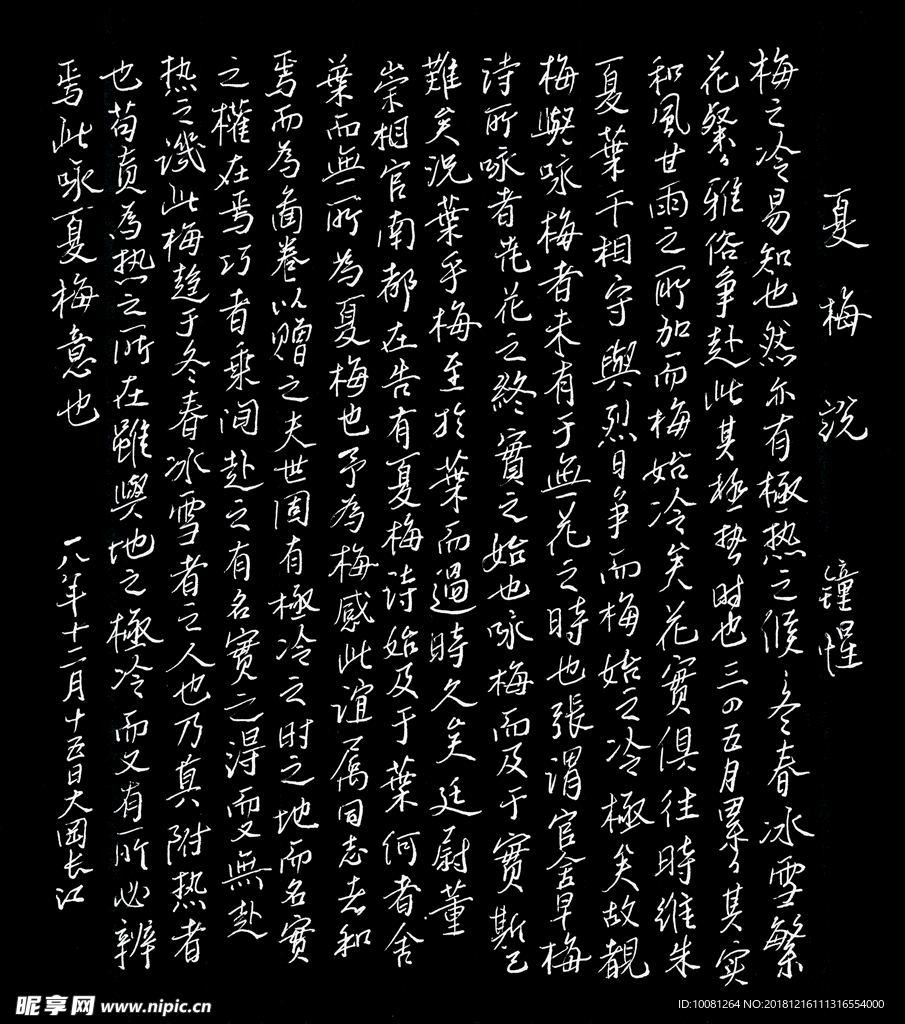 夏梅说 鐘惺
梅之冷易知也然亦有極热之候冬春冰雪繁
花粲々雅俗争赴此其極热时也三四五月累々其实
和風甘雨之所加而梅始冷矣花實俱往時维朱
夏葉干相守與烈日争而梅始之冷極矣故觀
梅與咏梅者未有于無花之時也張渭官舍早梅
诗所咏者花之終實之始也咏梅而及于實斯已
難矣况葉乎梅至於葉而過時久矣廷尉董
崇相官南都在告有夏梅诗始及于葉何者舍
葉而無所為夏梅也予為梅感此谊属同志者和
焉而為畵卷以赠之夫世固有極冷之时之地而名實
之權在焉巧者乘间赴之有名實之得而又無赴
热之譏此梅趋于冬春冰雪者之人也乃真附热者
也苟真為热之所在雖與地之極冷而又有所必辨
焉此咏夏梅意也
一八年十二月十五日大岡长江
昵享网 www.nipic.cn
ID:10081264 NO:20181216111316554000